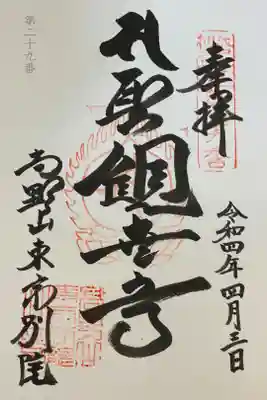 奉拝
令和四年四月三日
聖観世音
高野山東京別院
第二十九番